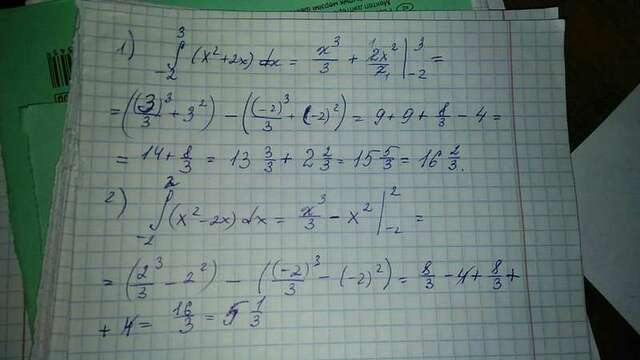 1) ∫_{-2}^{3} (x²+2x) dx = x³/3 + 2x²/2 |_{-2}^{3} =
= ((3)³/3 + 3²) - ((-2)³/3 + (-2)²) = 9 + 9 + 8/3 - 4 =
= 14 + 8/3 = 13 3/3 + 2 2/3 = 15 5/3 = 16 2/3.
2) ∫_{-2}^{2} (x²-2x) dx = x³/3 - x² |_{-2}^{2} =
= (2³/3 - 2²) - ((-2)³/3 - (-2)²) = 8/3 - 4 + 8/3 +
+ 4 = 16/3 = 5 1/3